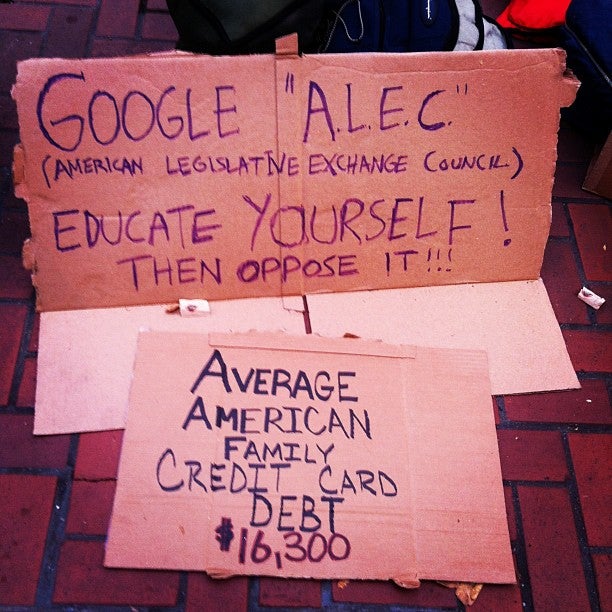 GOOGLE "A.L.E.C."
(AMERICAN LEGISLATIVE EXCHANGE COUNCIL)
EDUCATE YOURSELF!
THEN OPPOSE IT!!!
AVERAGE
AMERICAN
FAMILY
CREDIT CARD
DEBT
$16,300